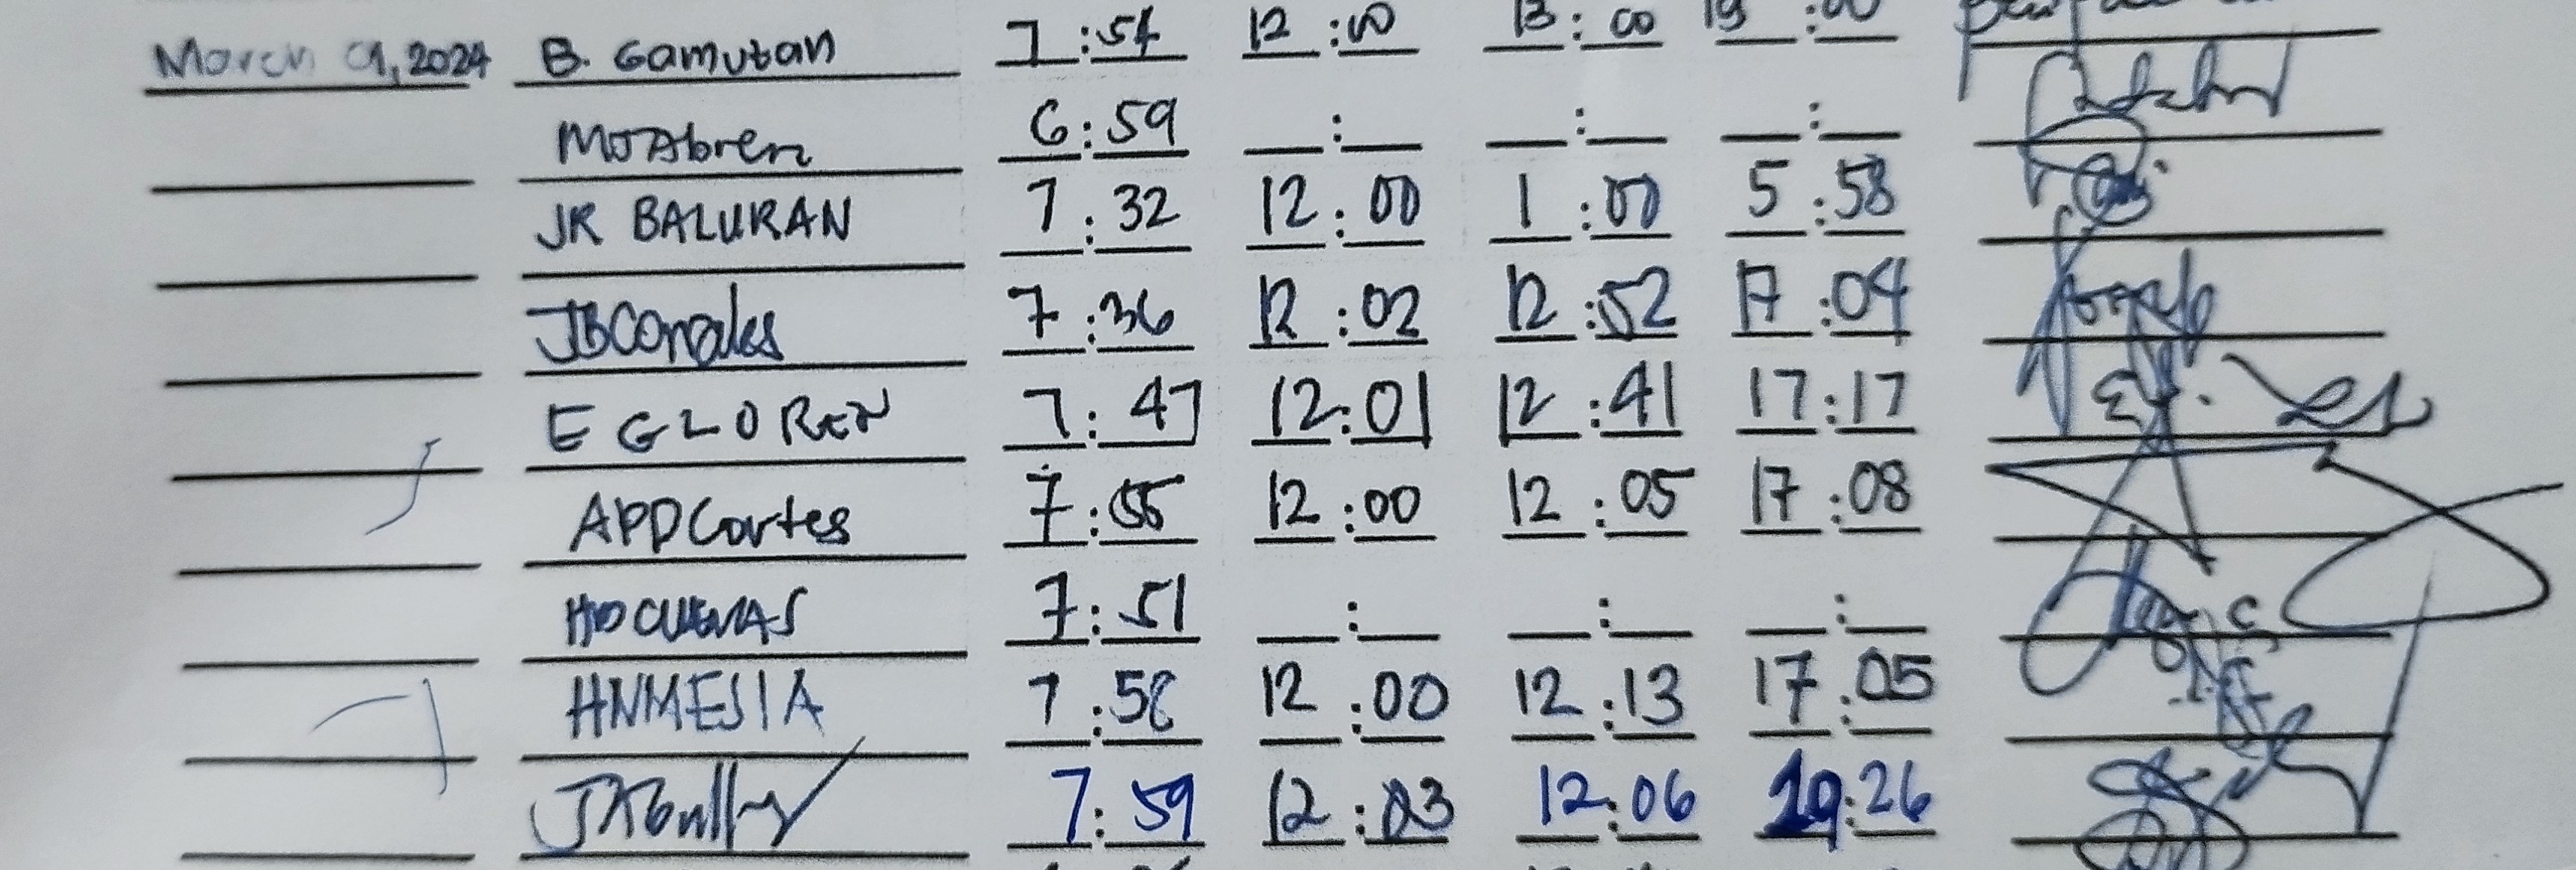 March 9, 2024 B. Gamutan 7:54 12:00 13:00 19:00
MJAbren 6:59 : : :
JR BALURAN 7:32 12:00 1:00 5:58
JBCorrales 7:36 12:02 12:52 17:04
EGLOREN 7:47 12:01 12:41 17:17
APDCortes 7:55 12:00 12:05 17:08
7:51 : : :
HNMESIA 7:58 12:00 12:13 17:05
7:59 12:03 12:06 19:26